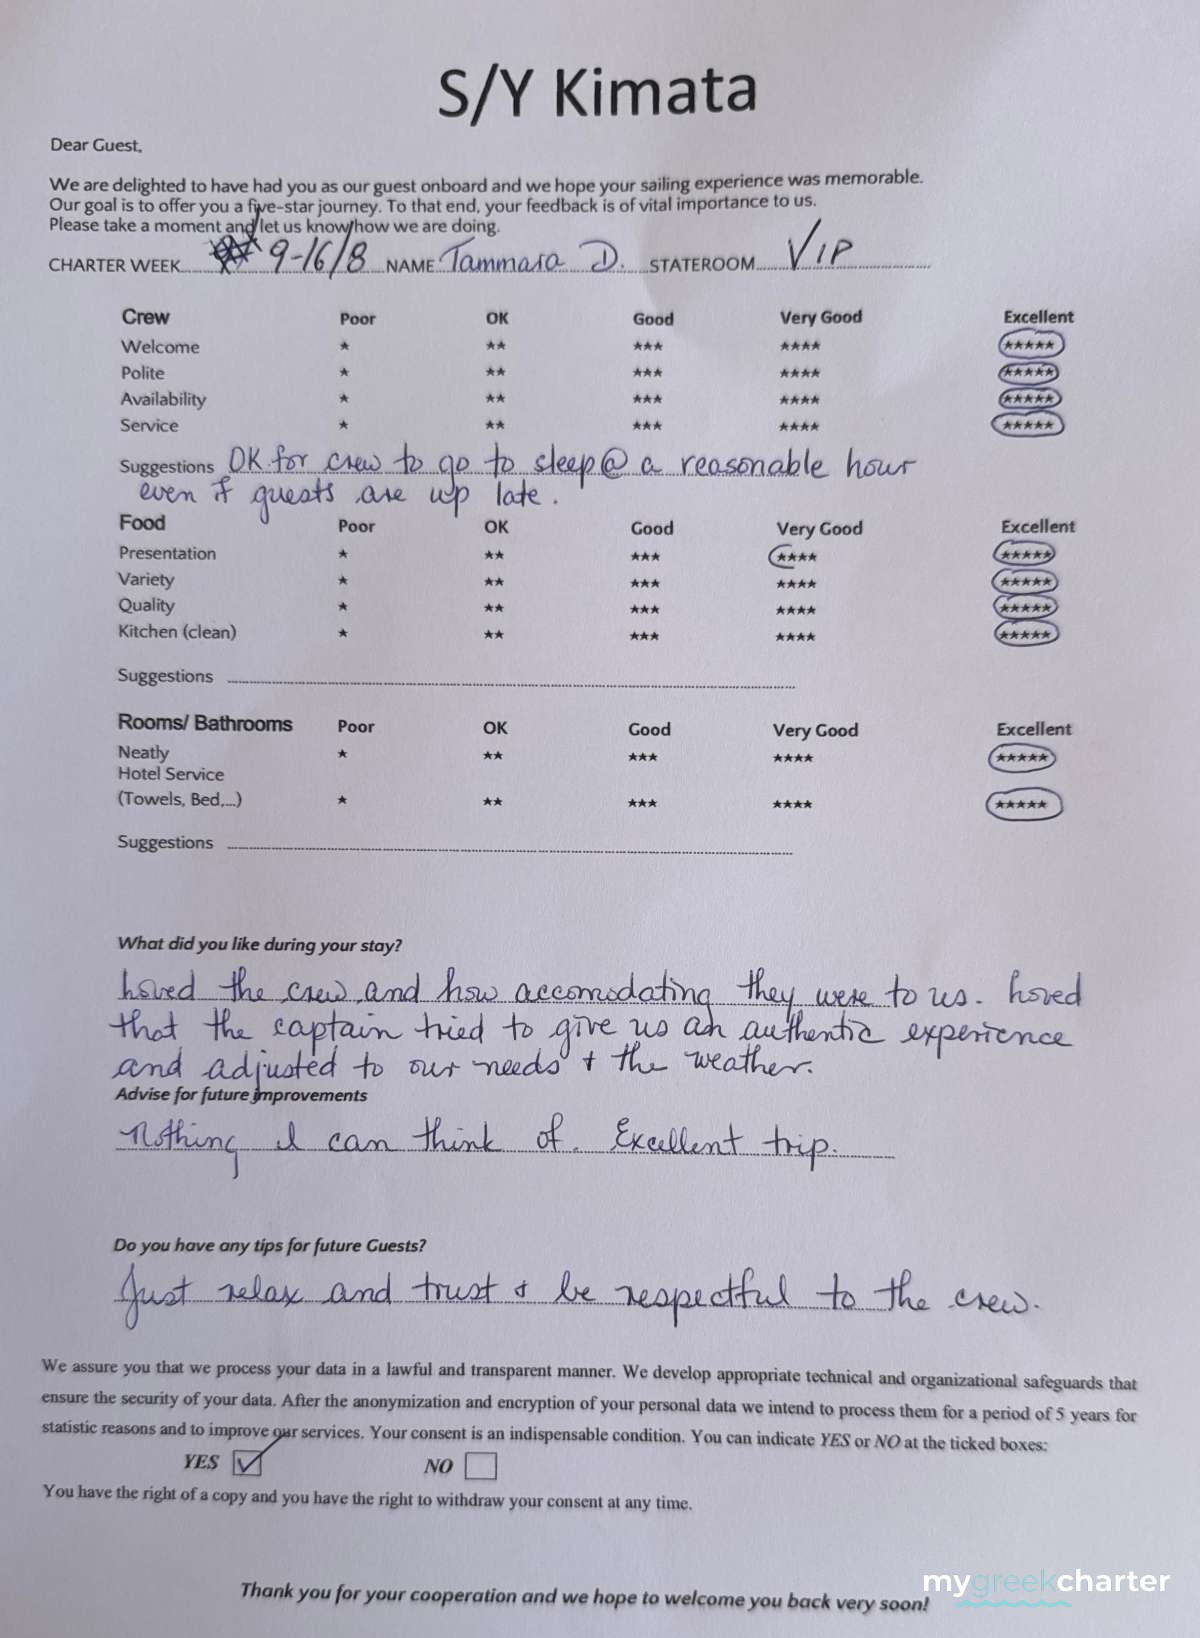 S/Y Kimata
Dear Guest,
We are delighted to have had you as our guest onboard and we hope your sailing experience was memorable.
Our goal is to offer you a five-star journey. To that end, your feedback is of vital importance to us.
Please take a moment and let us know how we are doing.
CHARTER WEEK 9-16/8 NAME Tammara D. STATEROOM VIP
Crew Poor OK Good Very Good Excellent
Welcome ★ ★★ ★★★ ★★★★ ★★★★★
Polite ★ ★★ ★★★ ★★★★ ★★★★★
Availability ★ ★★ ★★★ ★★★★ ★★★★★
Service ★ ★★ ★★★ ★★★★ ★★★★★
Suggestions OK for crew to go to sleep @ a reasonable hour
even if guests are up late.
Food Poor OK Good Very Good Excellent
Presentation ★ ★★ ★★★ ★★★★ ★★★★★
Variety ★ ★★ ★★★ ★★★★ ★★★★★
Quality ★ ★★ ★★★ ★★★★ ★★★★★
Kitchen (clean) ★ ★★ ★★★ ★★★★ ★★★★★
Suggestions
Rooms/ Bathrooms Poor OK Good Very Good Excellent
Neatly ★ ★★ ★★★ ★★★★ ★★★★★
Hotel Service
(Towels, Bed,...) ★ ★★ ★★★ ★★★★ ★★★★★
Suggestions
What did you like during your stay?
Loved the crew and how accomodating they were to us. Loved
that the captain tried to give us an authentic experience
and adjusted to our needs & the weather.
Advise for future improvements
Nothing I can think of. Excellent trip.
Do you have any tips for future Guests?
Just relax and trust & be respectful to the crew.
We assure you that we process your data in a lawful and transparent manner. We develop appropriate technical and organizational safeguards that
ensure the security of your data. After the anonymization and encryption of your personal data we intend to process them for a period of 5 years for
statistic reasons and to improve our services. Your consent is an indispensable condition. You can indicate YES or NO at the ticked boxes:
YES ☑ NO ☐
You have the right of a copy and you have the right to withdraw your consent at any time.
Thank you for your cooperation and we hope to welcome you back very soon!
mygreekcharter